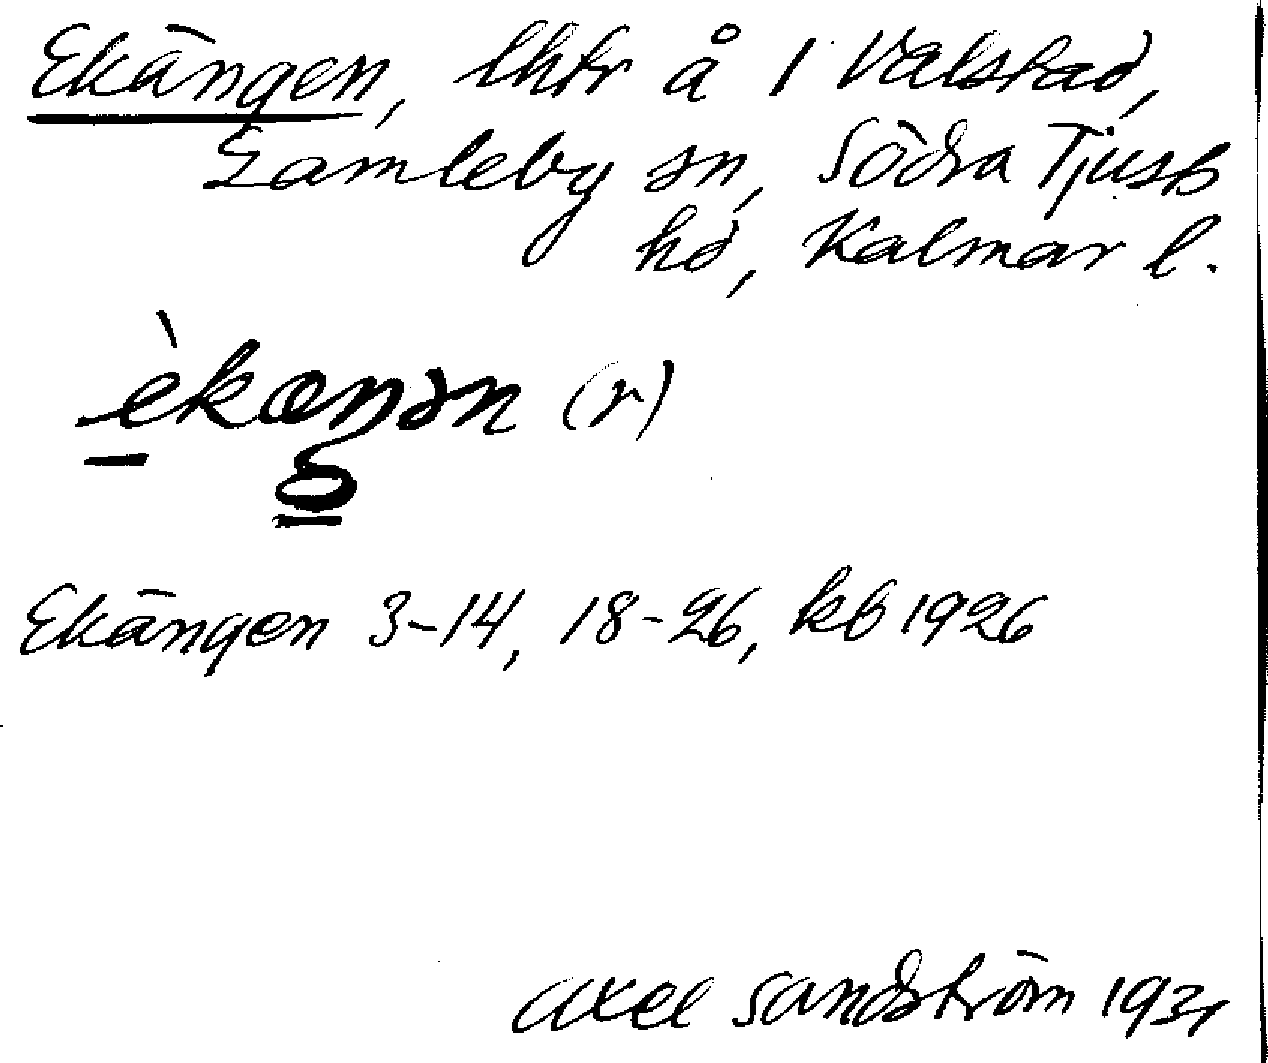 Ekängen, lhtr å 1 Valstad,
Gamleby sn, Södra Tjusts
hd, Kalmar l.
èkæŋən (r)
Ekängen 3-14, 18-26, kb 1926
Axel Sandström 1931